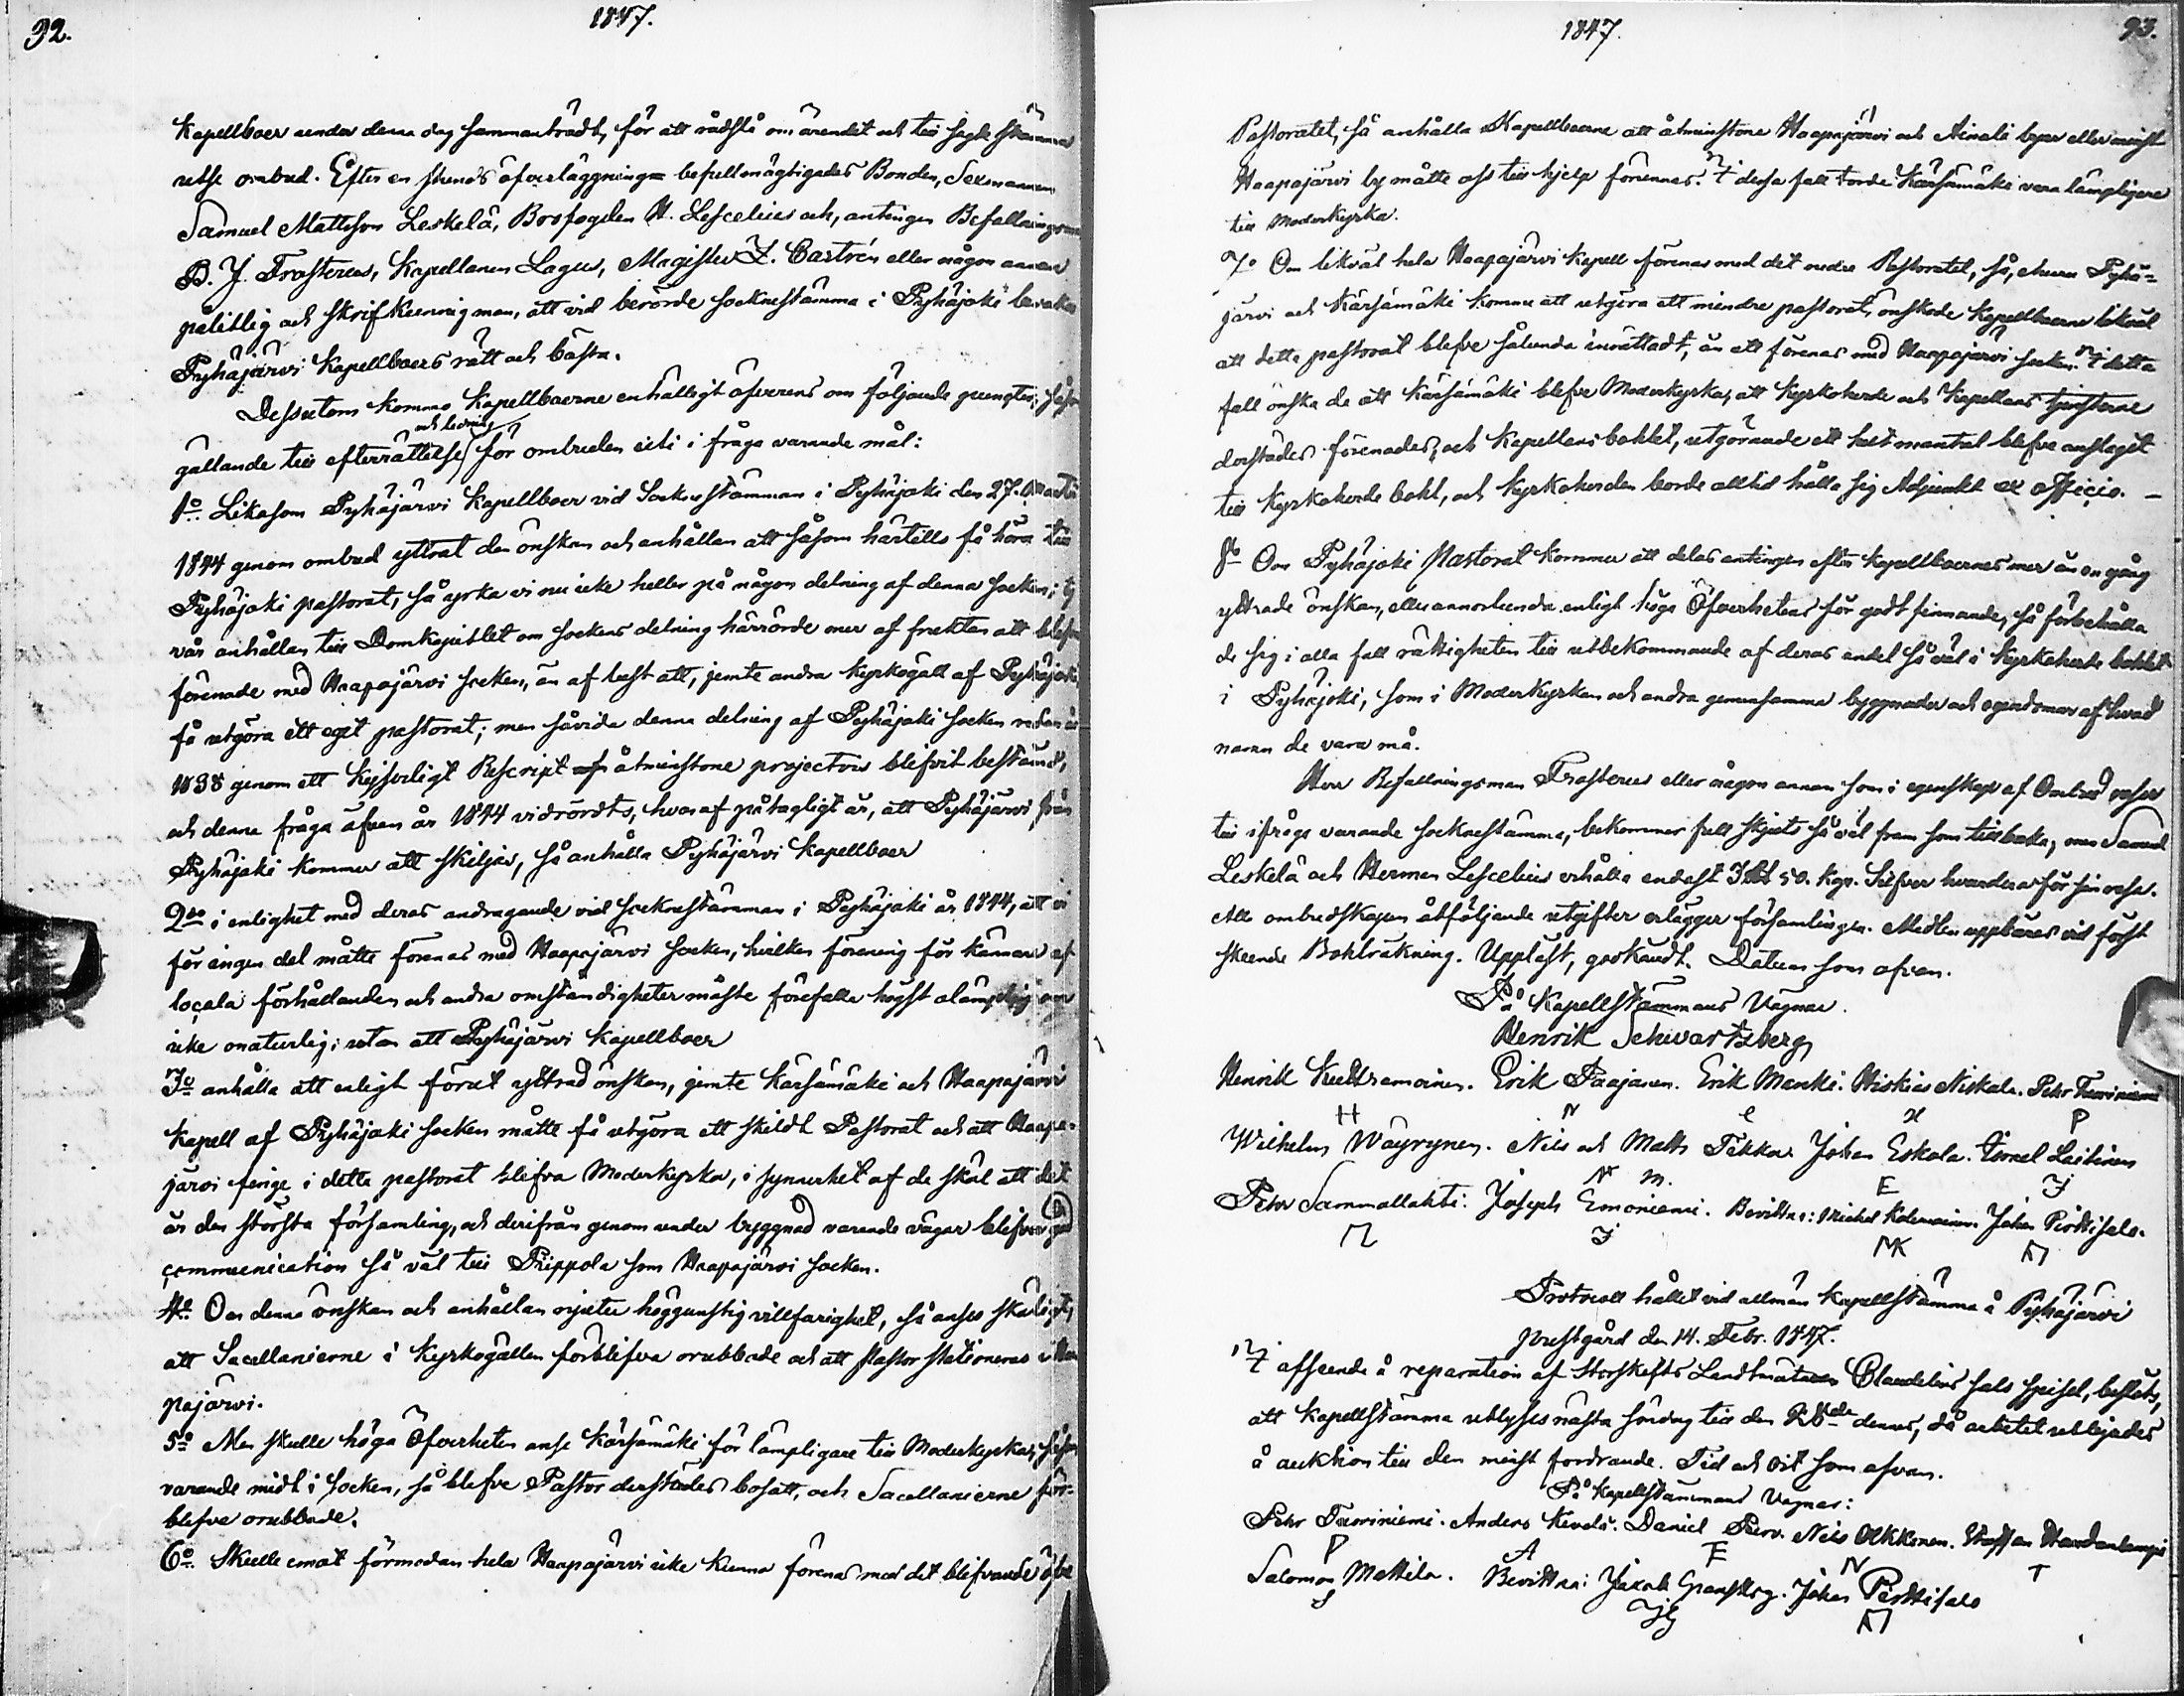 92.
1847.
Kapellboer under denna dag sammanträdt, för att rådslå om ärendet och till sagde stämma
utse ombud. Efter en stunds öfverläggning befullmägtigades Bonden, Sexmannen
Samuel Mattsson Leskelä, Bosfogden H. Lescelius och, antingen Befallningsman
B. J. Frosterus, Kapellanen Lagus, Magister Z. Castrén eller någon annan
pålitlig och skrifkunnig man, att vid berörde socknestämma i Pyhäjoki bevaka
Pyhäjärvi Kapellboers rätt och bästa.
Dessutom kommo Kapellboerne enhälligt öfverens om följande puncter, såsom
gällande till efterrättelse och ledning för ombuden uti i fråga varande mål:
1o Likasom Pyhäjärvi Kapellboer vid Socknestämman i Pyhäjoki den 27. Martii
1844 genom ombud yttrat den önskan och anhållan att såsom härtills få höra till
Pyhäjoki pastorat, så yrka vi nu icke heller på någon delning af denna socken; ty
vår anhållan till Domkapitlet om sockens delning härrörde mer af fruktan att blifva
förenade med Haapajärvi socken, än af lust att, jemte andra kyrkogäll af Pyhäjoki,
få utgöra ett eget pastorat; men såvida denna delning af Pyhäjoki socken redan år
1838 genom ett Kejserligt Rescript åtminstone projectvis blifvit bestämd,
och denna fråga äfven år 1844 vidrördts, hvaraf påtagligt är, att Pyhäjärvi från
Pyhäjoki kommer att skiljas, så anhålla Pyhäjärvi Kapellboer
2do i enlighet med deras andragande vid socknestämman i Pyhäjoki år 1844, att vi
för ingen del måtte förenas med Haapajärvi socken, hvilken förening för kännare af
locala förhållanden och andra omständigheter måste förefalla högst olämplig om
icke onaturlig; utan att Pyhäjärvi Kapellboer
3o anhålla att enligt förut yttrad önskan, jemte Kärsämäki och Haapajärvi
Kapell af Pyhäjoki socken måtte få utgöra ett skildt Pastorat och att Haapa-
järvi finge i detta pastorat blifva Moderkyrka, i synnerhet af de skäl att det
är den största församling, och derifrån genom under byggnad varande vägar blifver god
communication så väl till Piippola som Haapajärvi socken.
4o Om denna önskan och anhållan njuter höggunstig villfarighet, så anses skäligt,
att Sacellanierne i Kyrkogällen förblifva orubbade och att Pastor stationeras i Haa-
pajärvi.
5o Men skulle höga Öfverheten anse Kärsämäki för lämpligare till Moderkyrka, såsom
varande midt i socken, så blefve Pastor derstädes bosatt, och Sacellanierne för-
blefve orubbade.
6o Skulle emot förmodan hela Haapajärvi icke kunna förenas med det blifvande öfre
1847.
93.
Pastoratet, så anhålla Kapellboerne att åtminstone Haapajärvi och Ainali byar eller minst
Haapajärvi by måtte oss till hjelp förunnas. I dessa fall torde Kärsämäki vara lämpligare
till Moderkyrka.
7o Om likväl hela Haapajärvi Kapell förenas med det nedre Pastoratet, så, ehuru Pyhä-
järvi och Kärsämäki komme att utgöra ett mindre pastorat, önskade Kapellboerne likväl
att detta pastorat blefve sålunda inrättadt, än att förenas med Haapajärvi socken. I detta
fall önska de att Kärsämäki blefve Moderkyrka, att Kyrkoherde och Kapellans tjensterne
derstädes förenades, och Kapellansbohlet, utgörande ett helt mantal blefve anslaget
till Kyrkoherde bohl, och Kyrkoherden borde alltid hålla sig Adjunkt ex officio. —
8o Om Pyhäjoki Pastorat kommer att delas antingen efter Kapellboernes mer än en gång
yttrade önskan, eller annorlunda enligt höga Öfverhetens för godt finnande, så förbehålla
de sig i alla fall rättigheten till utbekommande af deras andel så väl i Kyrkoherde bohlet
i Pyhäjoki, som i Moderkyrkan och andra gemensamma byggnader och egendomar af hvad
namn de vara må.
Herr Befallningsman Frosterus eller någon annan som i egenskap af Ombud reser
till ifråga varande socknestämma, bekommer full skjuts så väl fram som tillbaka, men Samuel
Leskelä och Herman Lescelius erhålla endast 3 Rbl 50. kop. Silfver hvardera för sin resa.
Alla ombudskapen åtföljande utgifter erlägger församlingen. Medlen uppbäres vid först
skeende Bohlräkning. Uppläst, godkändt. Datum som ofvan.
På Kapellstämmans Vägnar.
Henrik Schwartzberg
Henrik Kuttramoinen. Erik Paajanen. Erik Manki. Hiskias Niskala. Pehr Tuoriniemi
H N e H P
Wilhelm Wäyrynen. Nils och Matts Tikka. Johan Eskola. Israel Laitinen
N M. E I
Pehr Sammallahti. Joseph Emoniemi. Bevittna: Michel Kolemainen. Johan Pirttisalo.
J MK
Protocoll hållet vid allmän Kapellstämma å Pyhäjärvi
prestgård den 14. Febr. 1847.
I afseende å reparation af Storskifts Landtmätaren Claudelins sals spisel, beslöts,
att Kapellstämma utlyses nästa söndag till den 28de dennes, då arbetet utbjudes
å auktion till den minst fordrande. Tid och ort som ofvan.
På Kapellstämmans Vägnar:
Pehr Tuoriniemi. Anders Kendä. Daniel Purv. Nils Okkonen. Staffan Haudanlampi
P A E N T
Salomon Mattila. Bevittna: Jakob Granskog. Johan Pirttisalo
S JG